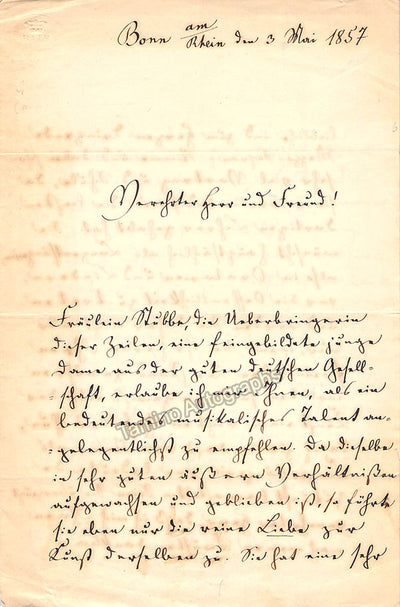 Bonn am Rhein den 3 Mai 1857
Verehrter Herr und Freund!
Fräulein Stübbe, die Ueberbringerin
dieser Zeilen, eine feingebildete junge
Dame aus der guten deutschen Gesell-
-schaft, erlaube ich mir Ihnen, als ein
bedeutendes musikalisches Talent an-
-gelegentlichst zu empfehlen. Da dieselbe
in sehr guten äußern Verhältnißen
aufgewachsen und geblieben ist, so führte
sie eben nur die reine Liebe zur
Kunst derselben zu. Sie hat eine sehr
Tamino Autographs